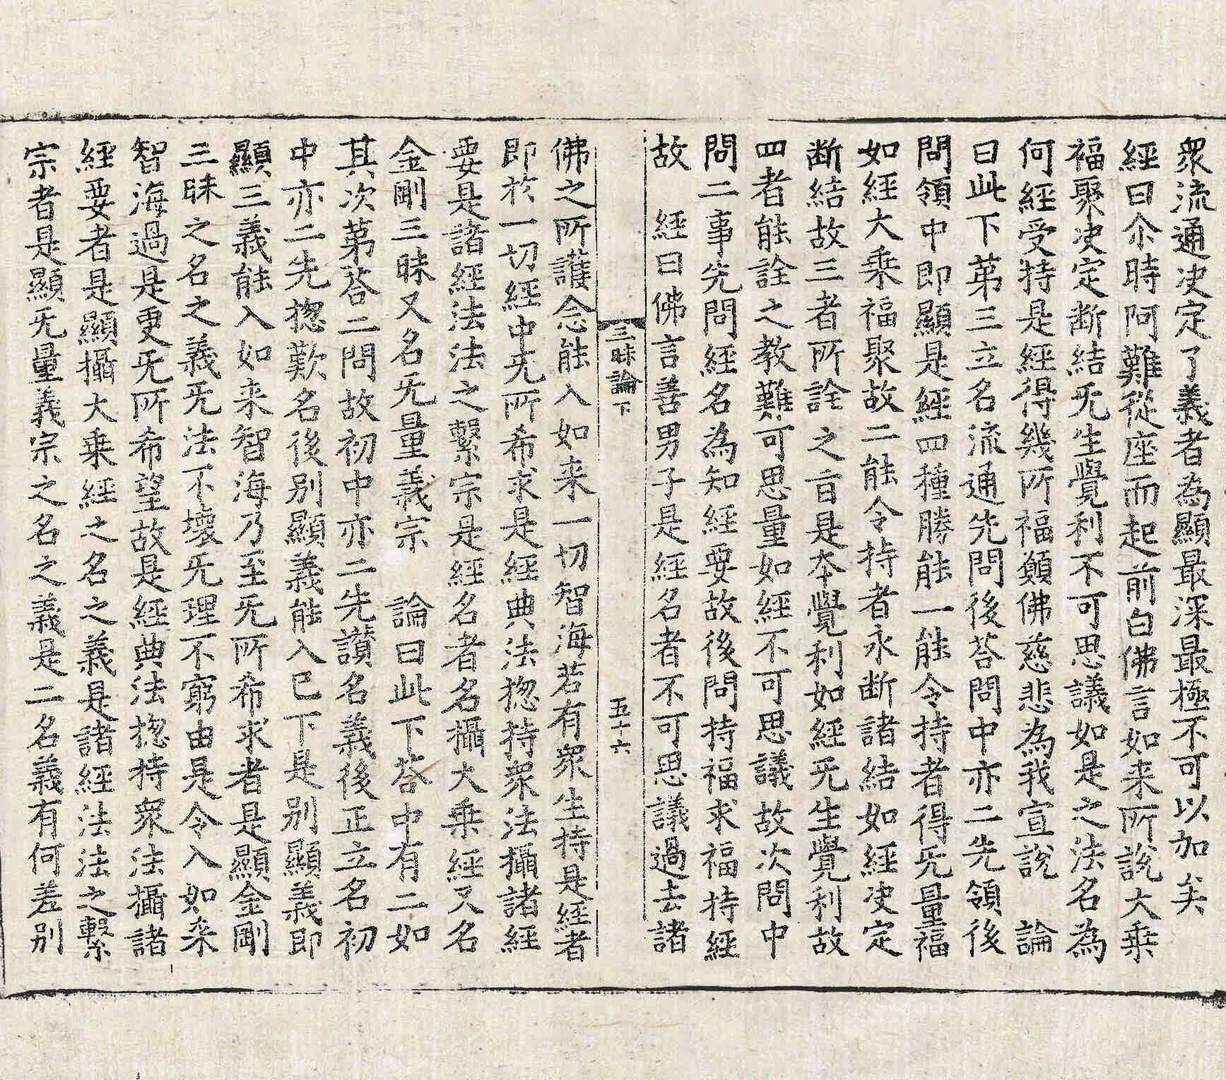 眾流通决定了義者為顯最深最極不可以加矣
經曰尒時阿難從座而起前白佛言如来所說大乗
福聚决定断結旡生覺利不可思議如是之法名為
何經受持是經得幾所福願佛慈悲為我宣說　論
曰此下第三立名流通先問後荅問中亦二先領後
問領中即顯是經四種勝能一能令持者得旡量福
如經大乗福聚故二能令持者永断諸結如經决定
断結故三者所詮之旨是夲覺利如經旡生覺利故
四者能詮之教難可思量如經不可思議故次問中
問二事先問經名為知經要故後問持福求福持經
故　經曰佛言善男子是經名者不可思議過去諸
三昧論下　五十六
佛之所護念能入如来一切智海若有衆生持是經者
即於一切經中旡所希求是經典法揔持衆法攝諸經
要是諸經法法之繫宗是經名者名攝大乗經又名
金剛三昧又名旡量義宗　論曰此下荅中有二如
其次第荅二問故初中亦二先讃名義後正立名初
中亦二先揔歎名後别顯義能入已下是别顯義即
顯三義能入如来智海乃至旡所希求者是顯金剛
三昧之名之義旡法不壊旡理不窮由是令入如来
智海過是更旡所希望故是經典法揔持衆法攝諸
經要者是顯攝大乗經之名之義是諸經法法之繫
宗者是顯旡量義宗之名之義是二名義有何差别